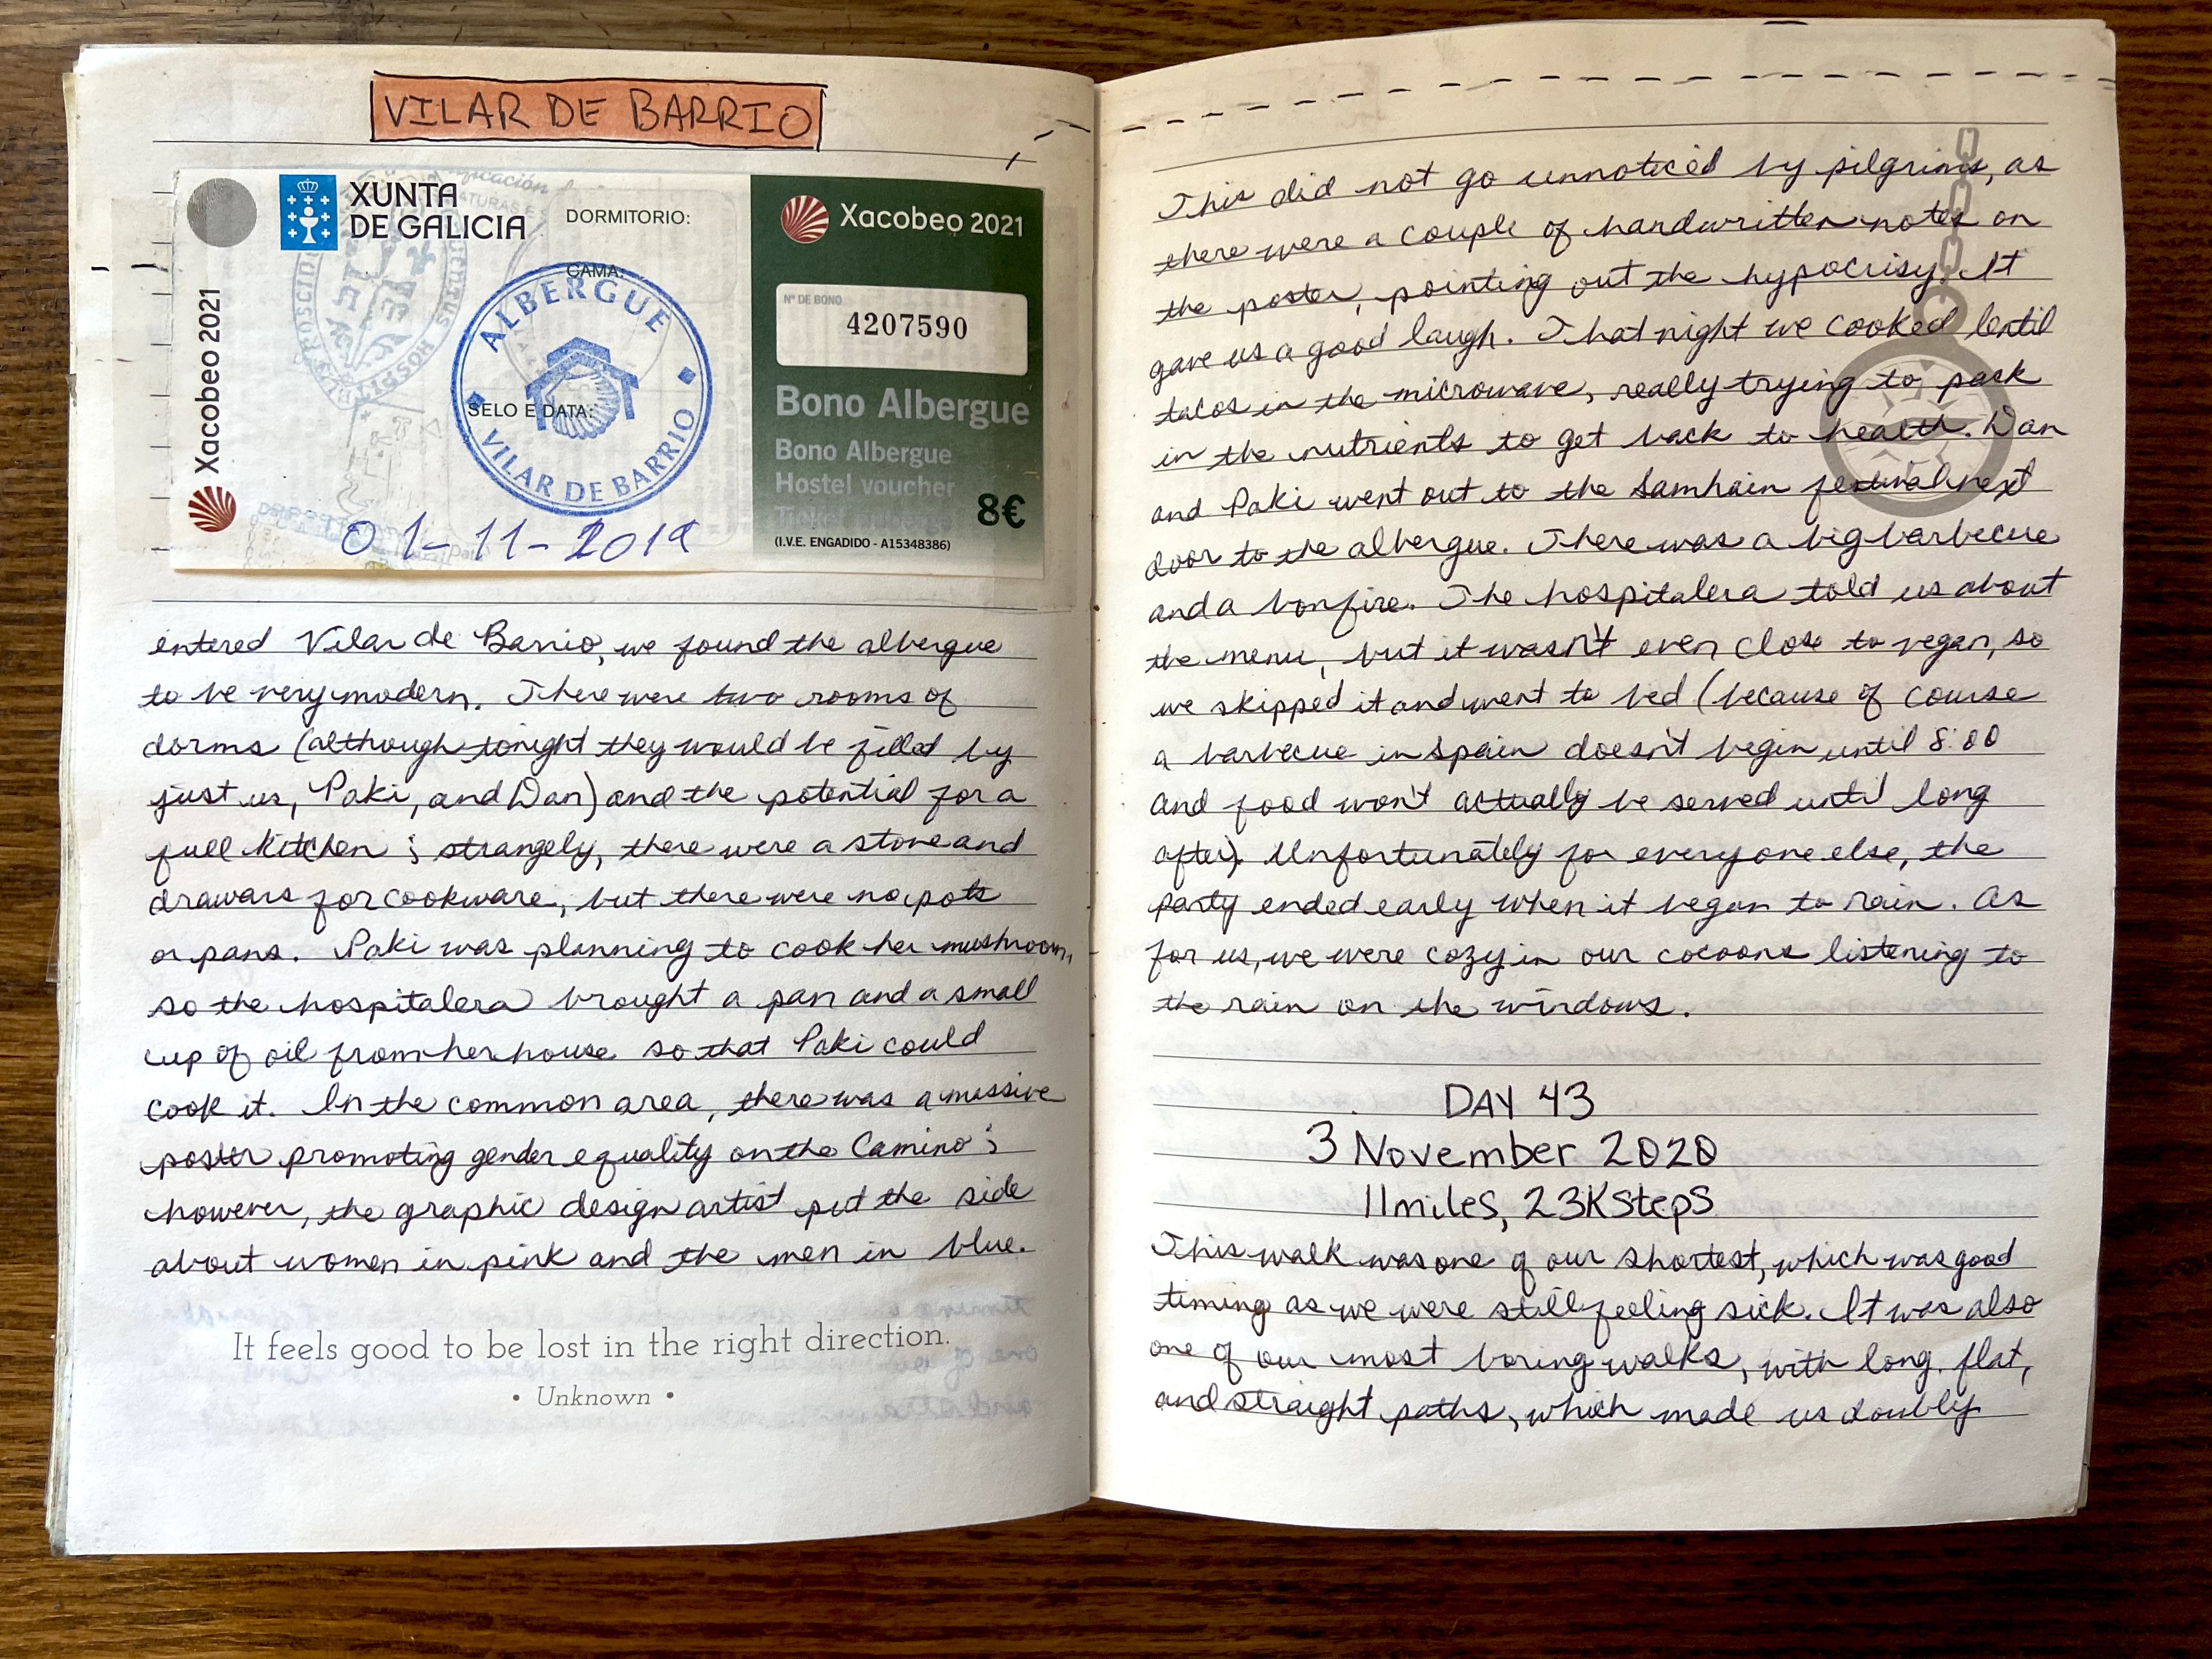 VILAR DE BARRIO
Xacobeo 2021
XUNTA
DE GALICIA
DORMITORIO:
CAMA:
SELO E DATA:
ALBERGUE
VILAR DE BARRIO
01-11-2019
Xacobeo 2021
Nº DE BONO
4207590
Bono Albergue
Bono Albergue
Hostel voucher
8€
(I.V.E. ENGADIDO - A15348386)
entered Vilar de Barrio, we found the albergue
to be very modern. There were two rooms of
dorms (although tonight they would be filled by
just us, Paki, and Dan) and the potential for a
full kitchen; strangely, there were a stove and
drawars for cookware, but there were no pots
or pans. Paki was planning to cook her mushroom,
so the hospitalera brought a pan and a small
cup of oil from her house so that Paki could
cook it. In the common area, there was a massive
poster promoting gender equality on the Camino;
however, the graphic design artist put the side
about women in pink and the men in blue.
It feels good to be lost in the right direction.
• Unknown •
This did not go unnoticed by pilgrims, as
there were a couple of handwritten notes on
the poster, pointing out the hypocrisy. It
gave us a good laugh. That night we cooked lentil
tacos in the microwave, really trying to pack
in the nutrients to get back to health. Dan
and Paki went out to the Samhain festival next
door to the albergue. There was a big barbecue
and a bonfire. The hospitalera told us about
the menu, but it wasn't even close to vegan, so
we skipped it and went to bed (because of course
a barbecue in Spain doesn't begin until 8:00
and food won't actually be served until long
after). Unfortunately for everyone else, the
party ended early when it began to rain. As
for us, we were cozy in our cocoons listening to
the rain on the windows.
DAY 43
3 November 2020
11 miles, 23K steps
This walk was one of our shortest, which was good
timing as we were still feeling sick. It was also
one of our most boring walks, with long, flat,
and straight paths, which made us doubly